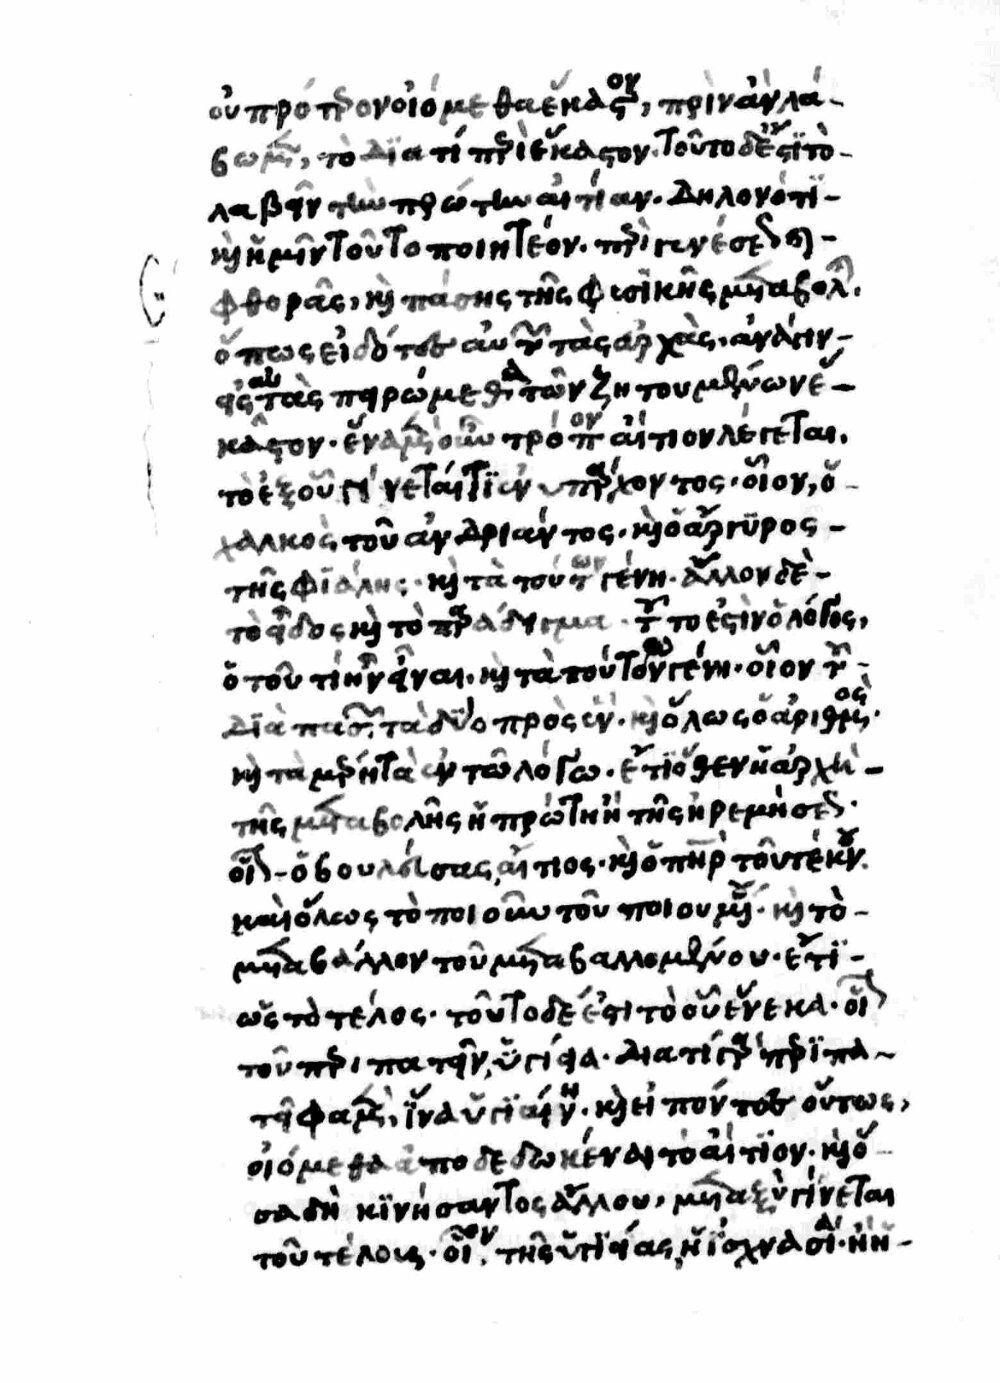 οὐ πρότερον οἰόμεθα ἕκαστον, πρὶν ἂν λά-
βωμεν, τὸ διατί περὶ ἕκαστον. τοῦτο δ' ἐστὶ τὸ-
λαβεῖν τὴν πρώτην αἰτίαν. δηλονότι-
καὶ ἡμῖν τοῦτο ποιητέον. περὶ γενέσεως καὶ-
φθορᾶς, καὶ πάσης τῆς φυσικῆς μεταβολῆς.
ὅπως εἰδότες αὐτῶν τὰς ἀρχὰς. ἀνάγειν-
εἰς αὐτὰς πειρώμεθα τῶν ζητουμένων ἕ-
καστον. ἕνα μὲν οὖν τρόπον αἴτιον λέγεται.
τὸ ἐξ οὗ γίνεταί τι ἐνυπάρχοντος. οἷον, ὁ-
χαλκὸς τοῦ ἀνδριάντος. καὶ ὁ ἄργυρος-
τῆς φιάλης. καὶ τὰ τούτων γένη. ἄλλον δὲ-
τὸ εἶδος καὶ τὸ παράδειγμα. τοῦτο ἐστὶν ὁ λόγος,
ὁ τοῦ τί ἦν εἶναι. καὶ τὰ τούτου γένη. οἷον τοῦ-
διὰ πασῶν τὰ δύο πρὸς ἕν. καὶ ὅλως ὁ ἀριθμός.
καὶ τὰ μέρη τὰ ἐν τῶ λόγω. ἔτι ὅθεν ἡ ἀρχὴ-
τῆς μεταβολῆς ἡ πρώτη ἢ τῆς ἠρεμήσεως.
οἷον-ὁ βουλεύσας αἴτιος. καὶ ὁ πατὴρ τοῦ τέκνου.
καὶ ὅλως τὸ ποιοῦν τοῦ ποιουμένου. καὶ τὸ-
μεταβάλλον τοῦ μεταβαλλομένου. ἔτι-
ὡς τὸ τέλος. τοῦτο δέ ἐστι τὸ οὗ ἕνεκα. οἷον
τοῦ περιπατεῖν, ὑγίεια. διατί γὰρ περιπα-
τεῖ φαμὲν, ἵνα ὑγιαίνη. καὶ εἰπόντες οὕτως,
οἰόμεθα ἀποδεδωκέναι τὸ αἴτιον. καὶ ὅ-
σα δὴ κινήσαντος ἄλλου, μεταξὺ γίνεται
τοῦ τέλους. οἷον, τῆς ὑγιείας, ἡ ἰσχνασία. ἢ ἡ-